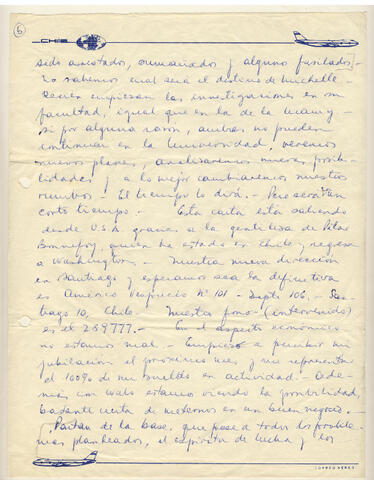 6
CHILE
sido arrestados, sumariados y alguno fusilados.-
No sabemos cual será el destino de Michelle.
Recien empiezan las investigaciones en su
facultad, igual que en la de la Nany.-
Si por alguna razón, ambas no pueden
continuar en la Universidad, veremos
nuevos planes, analizaremos nuevas posibi-
lidades y a lo mejor cambiaremos nuestros
rumbos.- El tiempo lo dirá.- Pero será tan
corto tiempo.- Esta carta esta saliendo
desde U.S.A. gracias a la gentileza de Pilar
Bonnefoy, quien ha estado en Chile y regresa
a Washington.- Nuestra nueva dirección
en Santiago y esperamos sea la definitiva
es Américo Vespucio N° 101 - Depto 106.- San-
tiago 10, Chile.- Nuestro fono (intervenido)
es el 289777.- En el aspecto económico
no estamos mal.- Empiezo a percibir mi
jubilación el próximo mes, y me representa
el 100% de mi sueldo en actividad.- Ade-
más, con estamos viendo la posibilidad,
bastante cierta de meternos en un buen negocio.-
Partan de la base, que pese a todos los proble-
mas planteados, el espíritu de lucha y los
CORREO AEREO